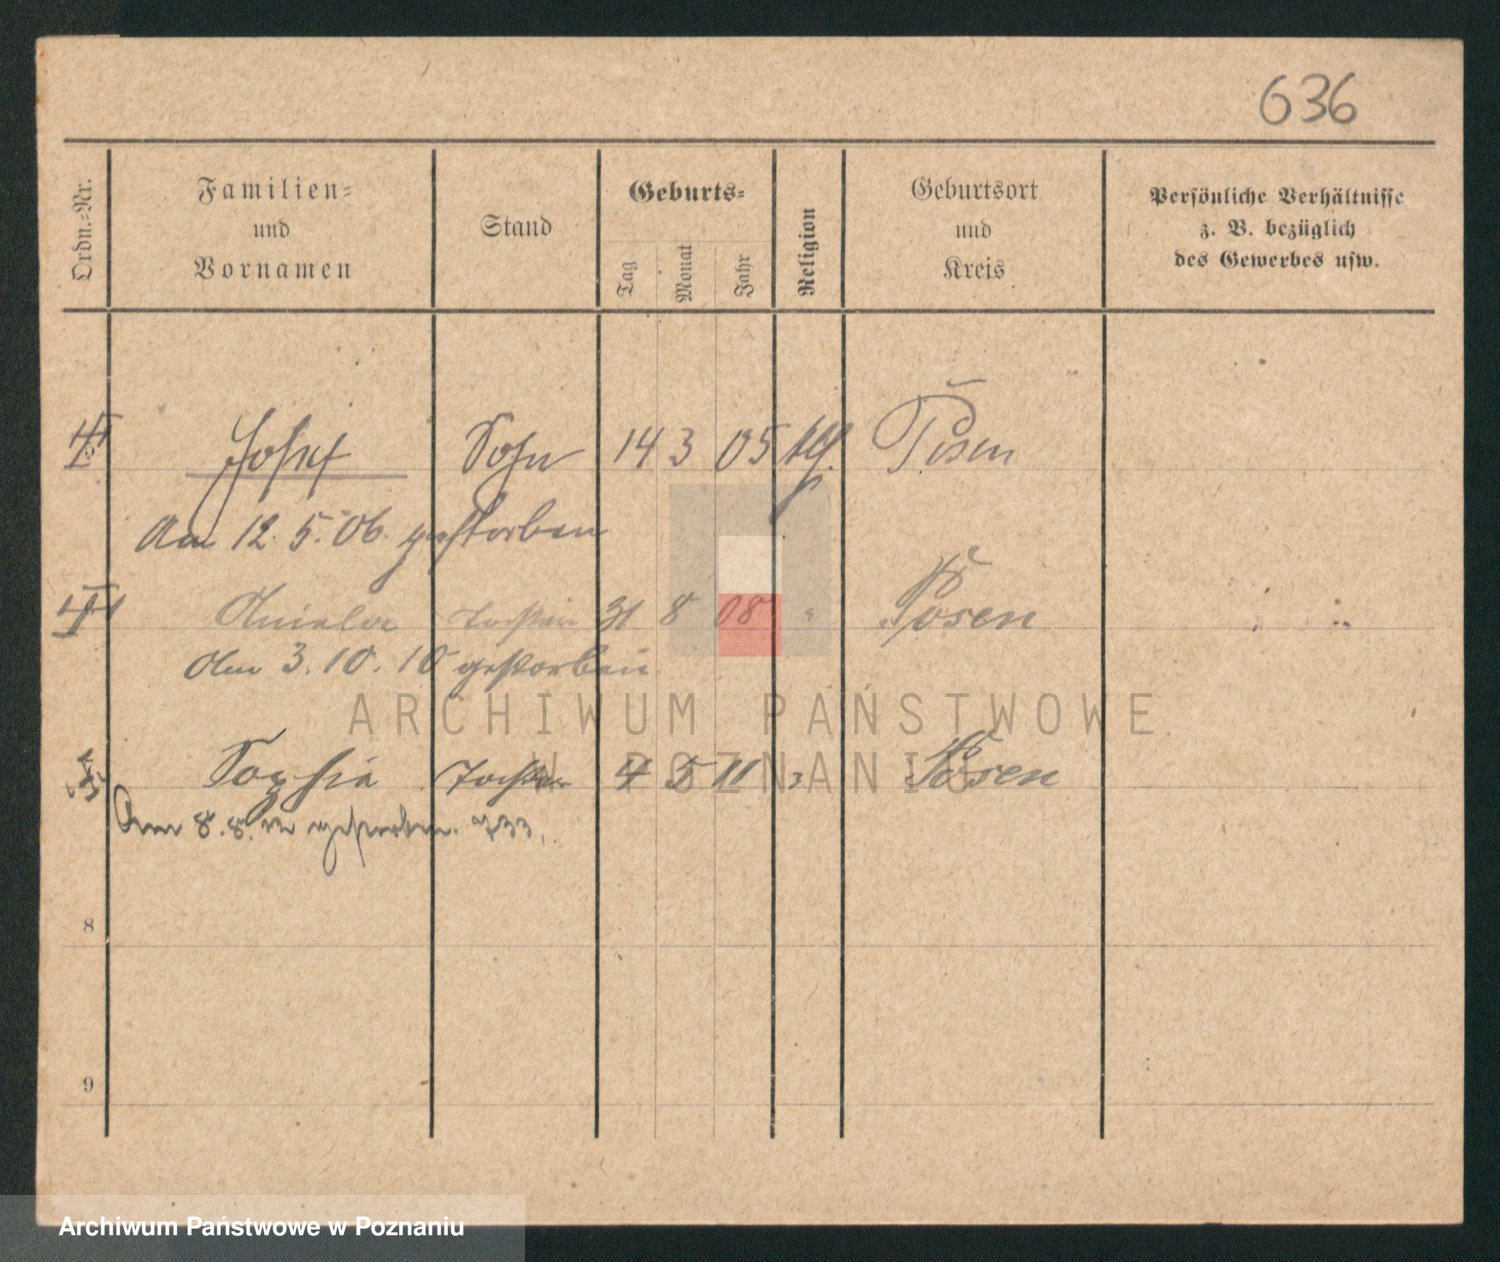 636
Ordn.-Nr.
Familien-
und
Vornamen
Stand
Geburts-
Tag
Monat
Jahr
Religion
Geburtsort
und
Kreis
Persönliche Verhältnisse
z. B. bezüglich
des Gewerbes usw.
Josef Sohn 14 3 05 Posen
Am 12. 5. 06. gestorben
Aniela Tochter 31 8 08 " Posen
Am 3. 10. 10 gestorben
ARCHIWUM PAŃSTWOWE
W POZNANIU
Sophia Tochter 4 5 11 " Posen
Am 8. 8. 12 gestorben. 733.
8
9
Archiwum Państwowe w Poznaniu